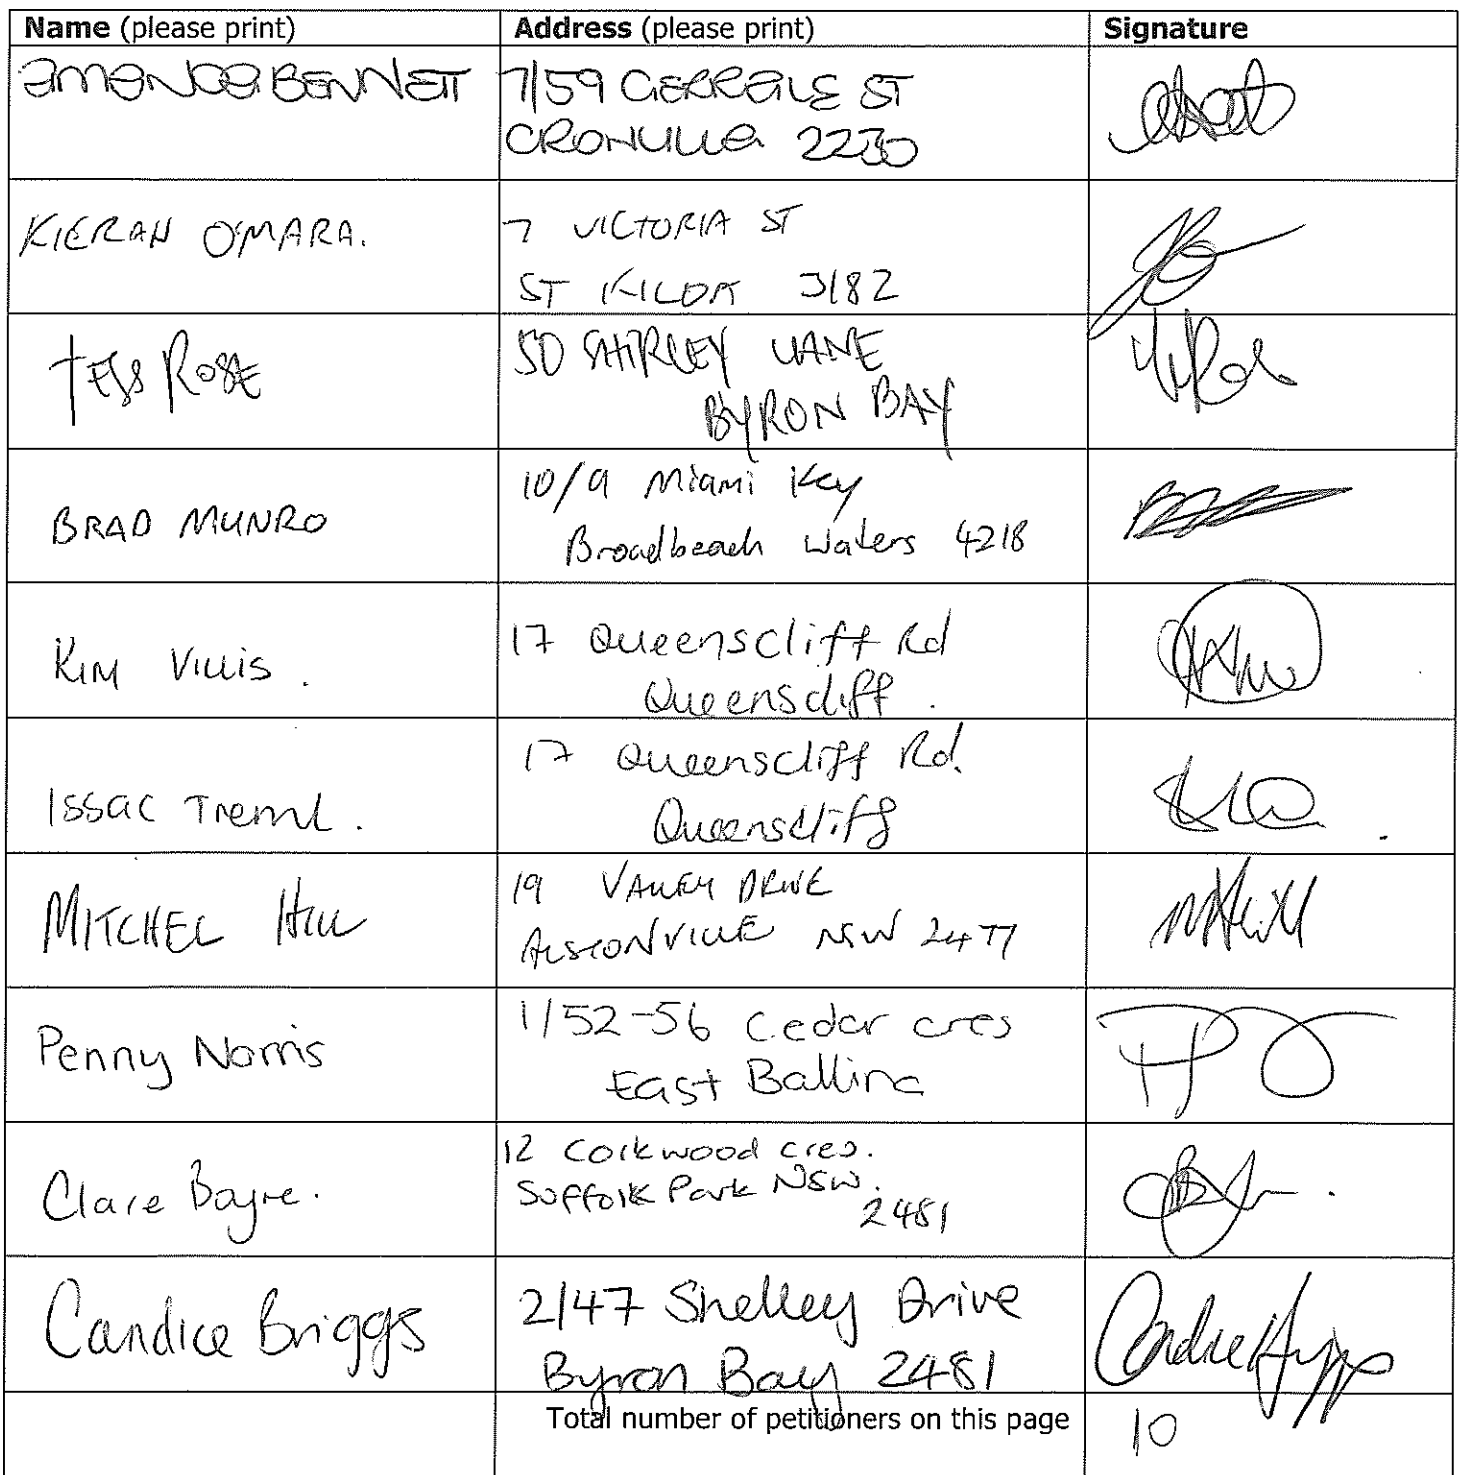 Name (please print) Address (please print) Signature
AMANDA BENNETT 7/59 GERRALE ST
CRONULLA 2230
KIERAN O'MARA. 7 VICTORIA ST
ST KILDA 3182
TESS ROSE 50 SHIRLEY LANE
BYRON BAY
BRAD MUNRO 10/9 Miami Key
Broadbeach Waters 4218
KIM VILLIS. 17 Queenscliff Rd
Queenscliff.
Issac Treml. 17 Queenscliff Rd.
Queenscliff
MITCHEL HILL 19 VALLEY DRIVE
ALSTONVILLE NSW 2477
Penny Norris 1/52-56 Cedar cres
East Ballina
Clare Bayre. 12 Corkwood cres.
Suffolk Park NSW.
2481
Candice Briggs 2/47 Shelley Drive
Byron Bay 2481
Total number of petitioners on this page 10